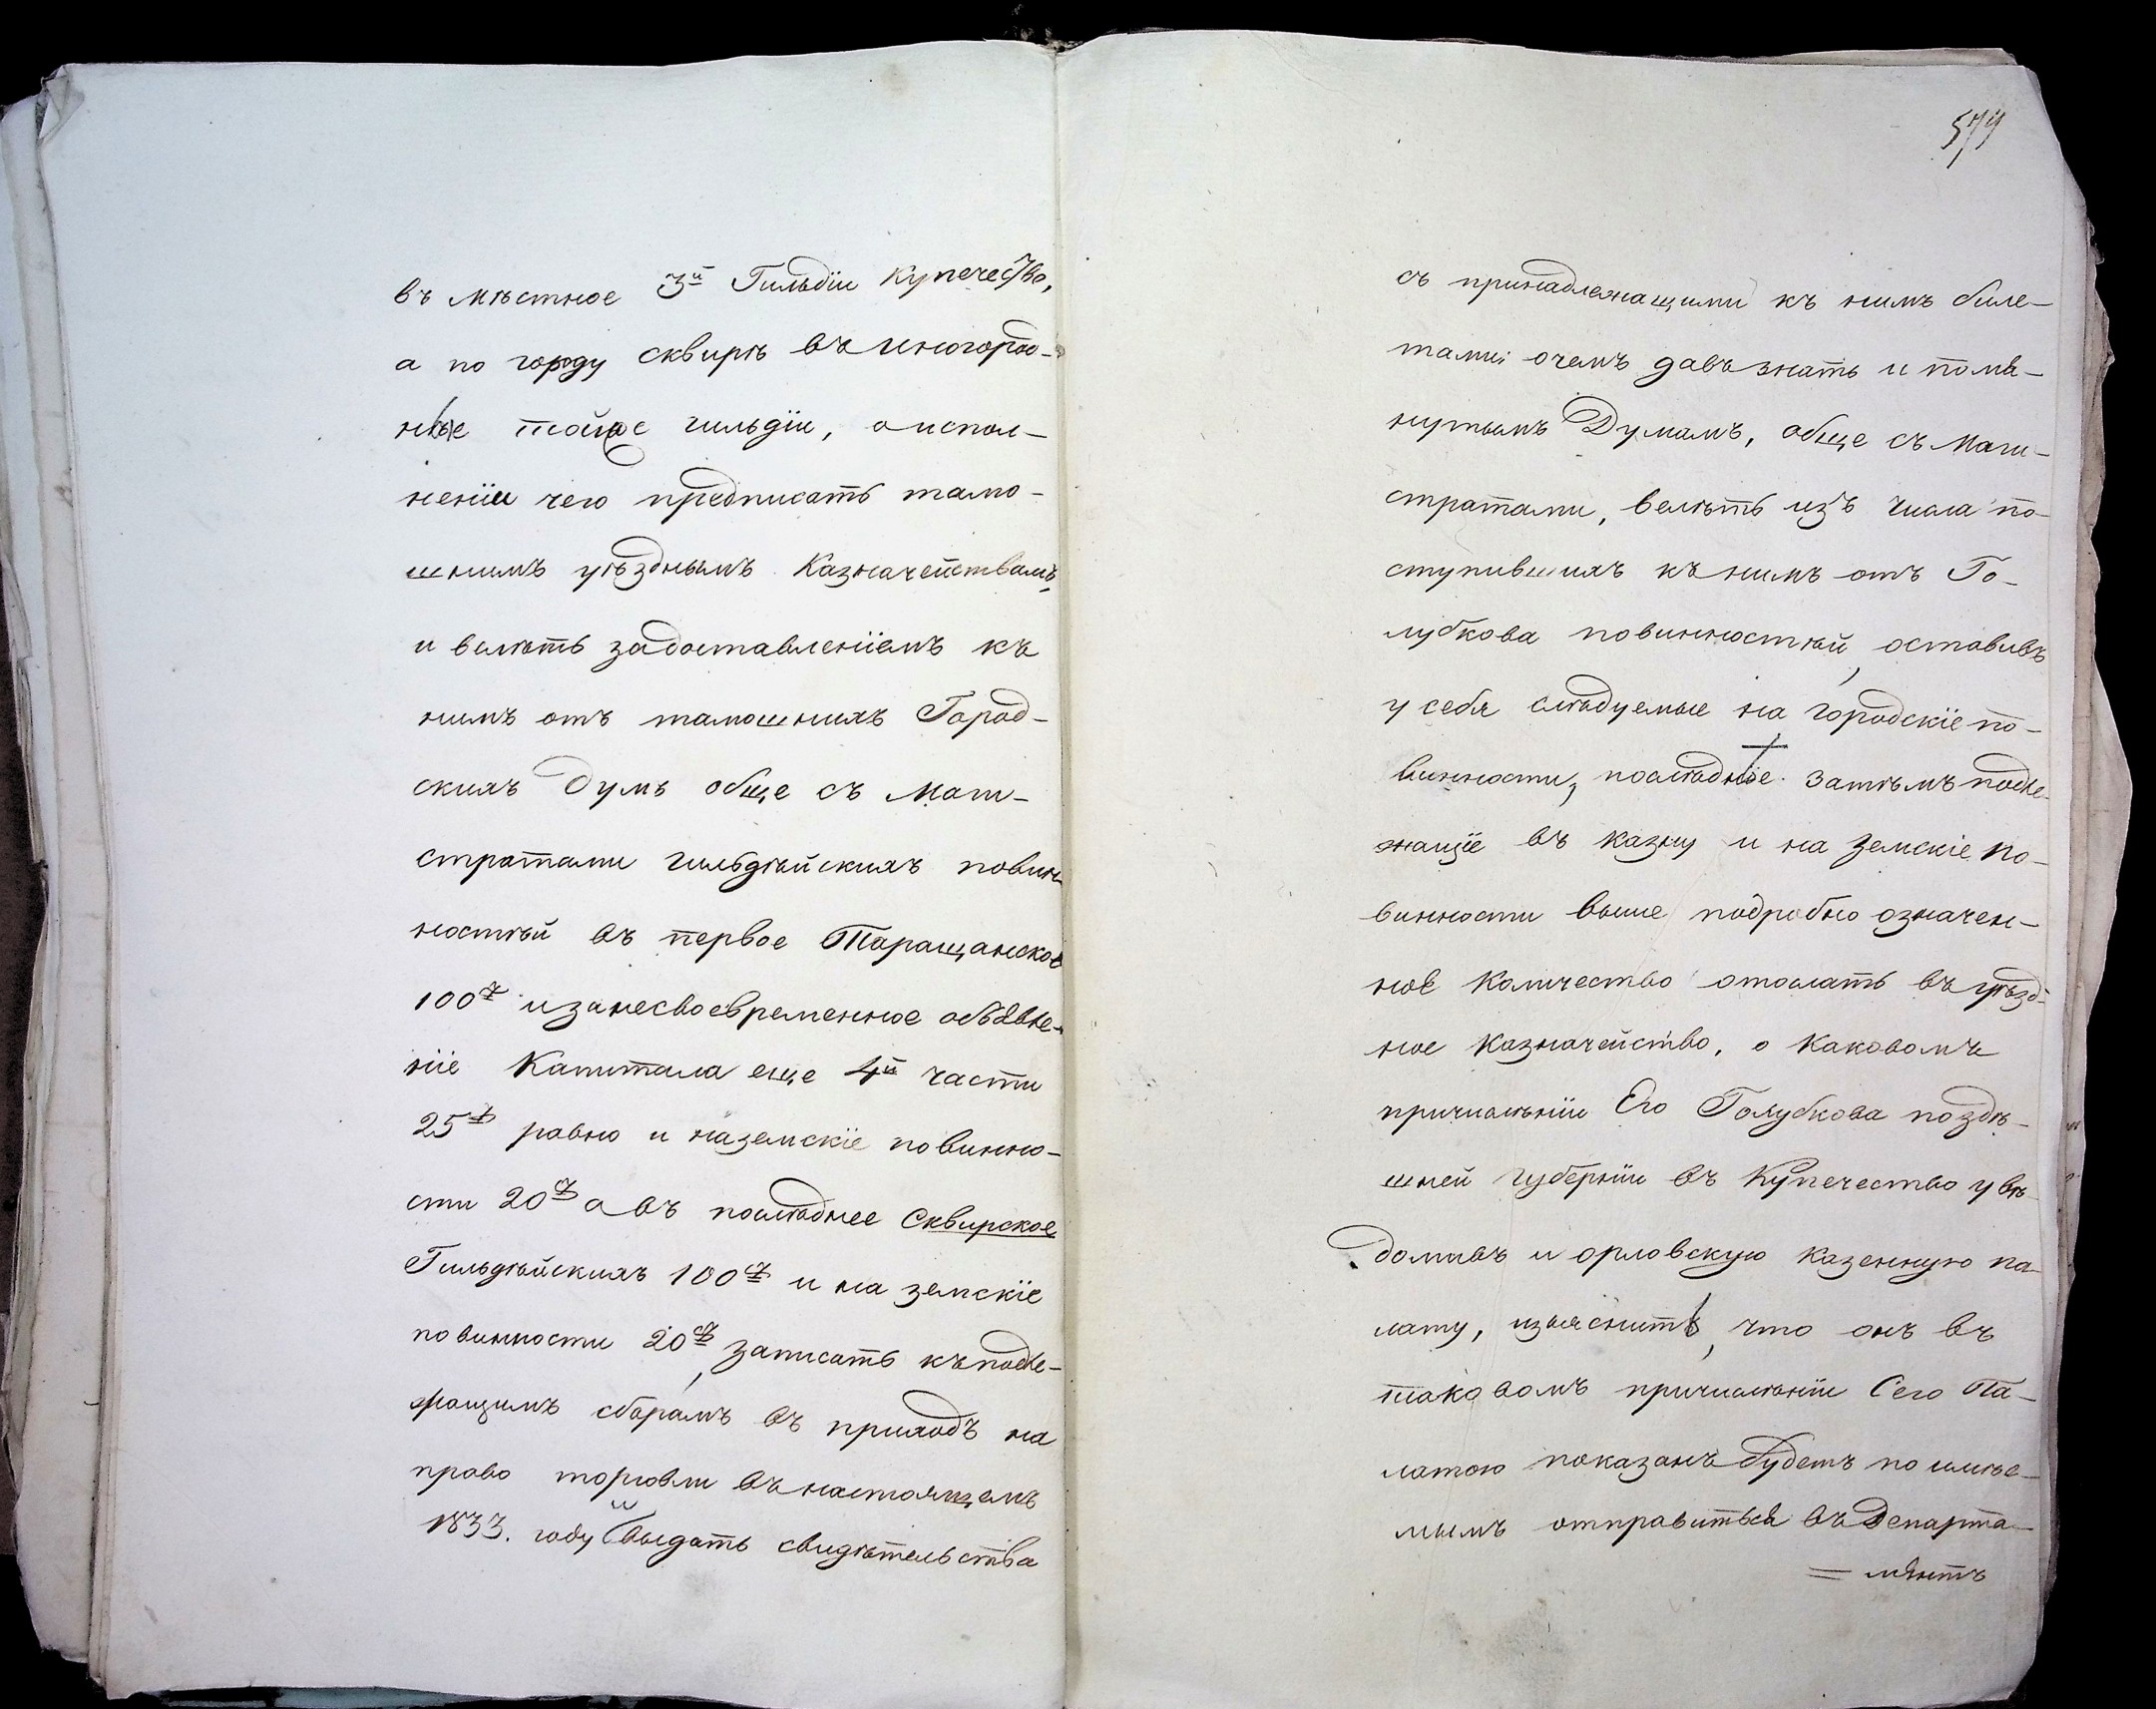 въ мѣстное 3й Гильдіи купечество,
а по городу сквирѣ въ иногород-
ные тойже гильдіи, о испол-
неніи чего предписать тамо-
шнимъ уѣзднымъ Казначействамъ,
и велѣть задоставленіемъ къ
нимъ отъ тамошнихъ Город-
скихъ Думъ обще съ Маги-
стратами гильдѣйскихъ повин-
ностѣй въ первое Таращанское
100 изанесвоевременное объявле-
ніе Капитала еще 4й части
25 равно и наземскіе повинно-
сти 20 а въ послѣднее Сквирское
Гильдѣйскихъ 100 и на земскіе
повинности 20, записать къ подле-
жащимъ сборамъ въ приходъ на
право торговли въ настоящемъ
1833. году и выдать свидѣтельства
579
съ принадлежащими къ нимъ биле-
тами; очемъ давъ знать и помя-
нутымъ Думамъ, обще съ Маги-
стратами, велѣть изъ числа по-
ступившихъ къ нимъ отъ Го-
лубкова повинностѣй, оставивъ
у себя слѣдуемые на городскіе по-
винности, послѣдніе. затѣмъ подле-
жащіе въ казну и на земскіе по-
винности выше подробно означен-
ное количество отослать въ уѣзд-
ное казначейство, о каковомъ
причисленіи Его Голубкова поздѣ-
шней губерніи въ купечество увѣ-
домивъ и орловскую казенную па-
лату, изъяснить, что онъ въ
таковомъ причисленіи Сего Па-
латою показанъ будетъ по имѣе-
мымъ отправиться въ Департа-
= мѣнтъ